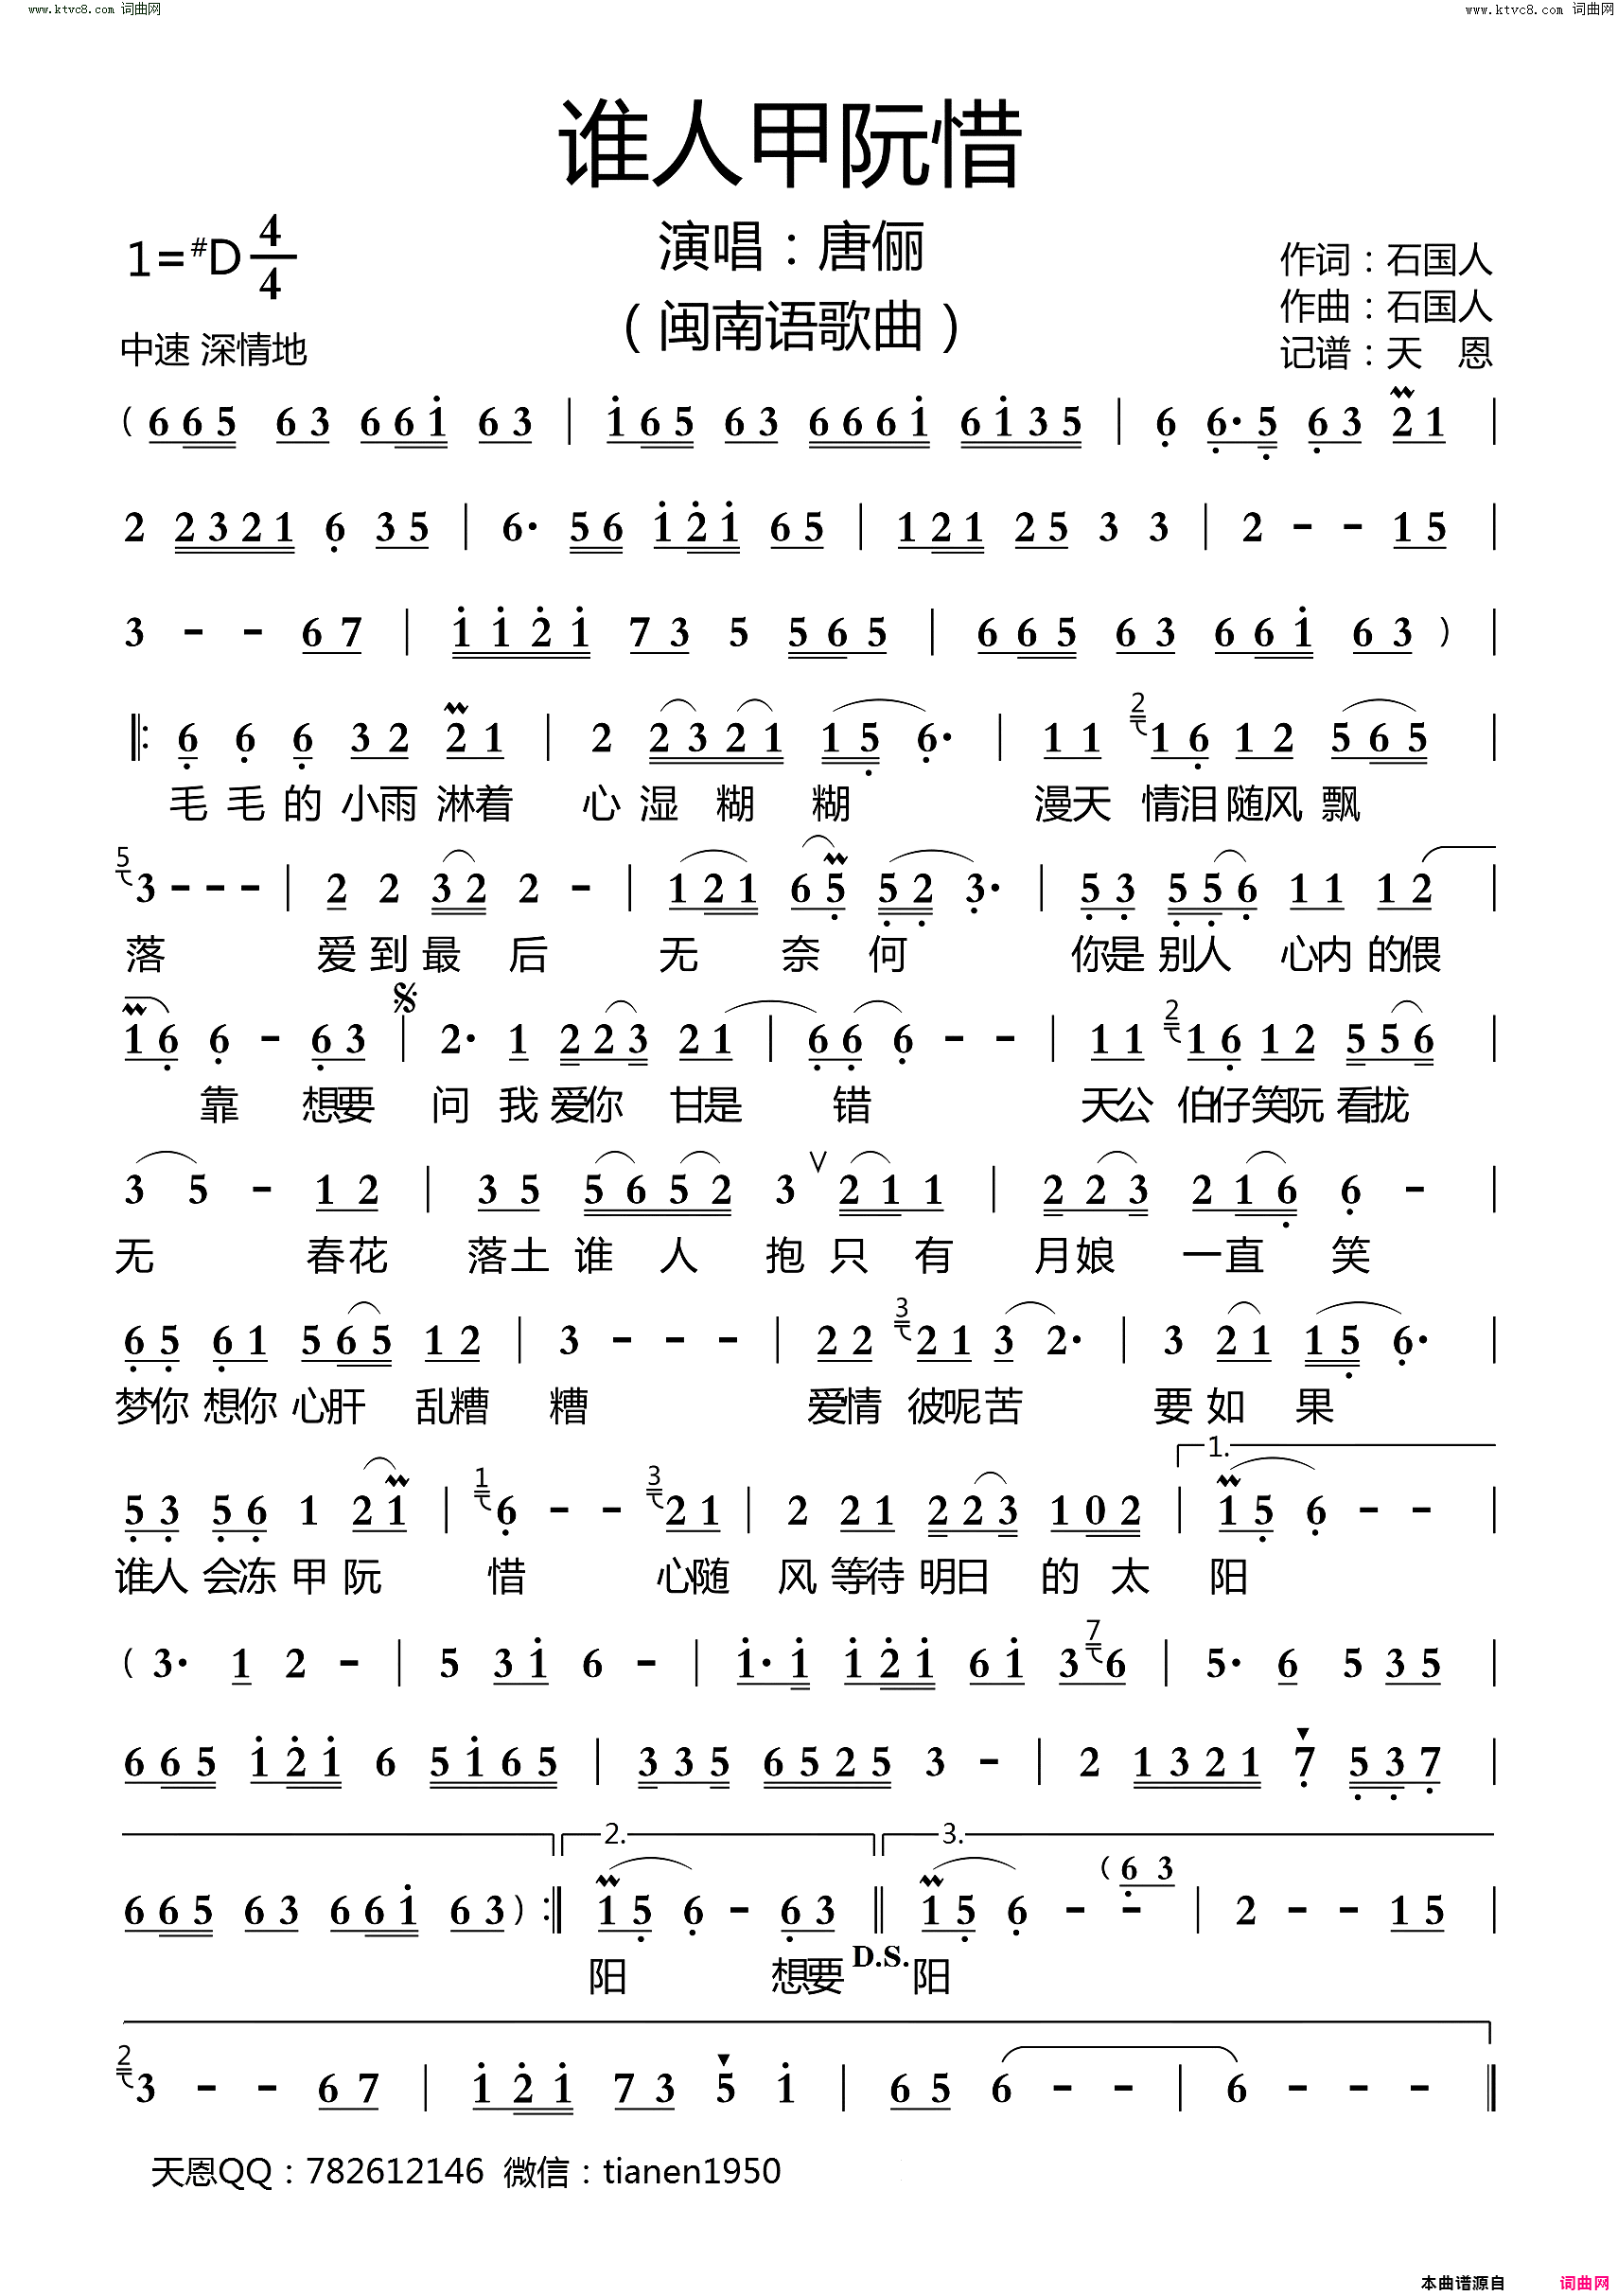 www.ktvc8.com 词曲网
www.ktvc8.com 词曲网
谁人甲阮惜
1=#D 4/4
演唱：唐俪
（闽南语歌曲）
作词：石国人
作曲：石国人
记谱：天 恩
中速 深情地
( 6 6 5 6 3 6 6 1 6 3 | 1 6 5 6 3 6 6 6 1 6 1 3 5 | 6 6· 5 6 3 2 1 |
2 2 3 2 1 6 3 5 | 6· 5 6 1 2 1 6 5 | 1 2 1 2 5 3 3 | 2 - - 1 5 |
3 - - 6 7 | 1 1 2 1 7 3 5 5 6 5 | 6 6 5 6 3 6 6 1 6 3 ) |
‖: 6 6 6 3 2 2 1 | 2 2 3 2 1 1 5 6· | 1 1 2 1 6 1 2 5 6 5 |
毛 毛 的 小雨 淋着 心 湿 糊 糊 漫天 情泪 随风 飘
5 3 - - - | 2 2 3 2 2 - | 1 2 1 6 5 5 2 3· | 5 3 5 5 6 1 1 1 2 |
落 爱 到 最 后 无 奈 何 你是 别人 心内 的偎
1 6 6 - 6 3 | 2· 1 2 2 3 2 1 | 6 6 6 - - | 1 1 2 1 6 1 2 5 5 6 |
靠 想要 问 我 爱你 甘是 错 天公 伯仔 笑阮 看拢
3 5 - 1 2 | 3 5 5 6 5 2 3 V 2 1 1 | 2 2 3 2 1 6 6 - |
无 春花 落土 谁 人 抱 只 有 月娘 一直 笑
6 5 6 1 5 6 5 1 2 | 3 - - - | 2 2 3 2 1 3 2· | 3 2 1 1 5 6· |
梦你 想你 心肝 乱糟 糟 爱情 彼呢 苦 要 如 果
1.
5 3 5 6 1 2 1 | 1 6 - - 3 2 1 | 2 2 1 2 2 3 1 0 2 | 1 5 6 - - |
谁人 会冻 甲 阮 惜 心随 风 等待 明日 的 太 阳
( 3· 1 2 - | 5 3 1 6 - | 1· 1 1 2 1 6 1 3 7 6 | 5· 6 5 3 5 |
6 6 5 1 2 1 6 5 1 6 5 | 3 3 5 6 5 2 5 3 - | 2 1 3 2 1 7 5 3 7 |
2. 3.
6 6 5 6 3 6 6 1 6 3 ) :‖ 1 5 6 - 6 3 ‖ 1 5 6 - (6 3 - | 2 - - 1 5 |
阳 想要 D.S. 阳
2 3 - - 6 7 | 1 2 1 7 3 5 1 | 6 5 6 - - | 6 - - - ‖
天恩QQ：782612146 微信：tianen1950
本曲谱源自 词曲网